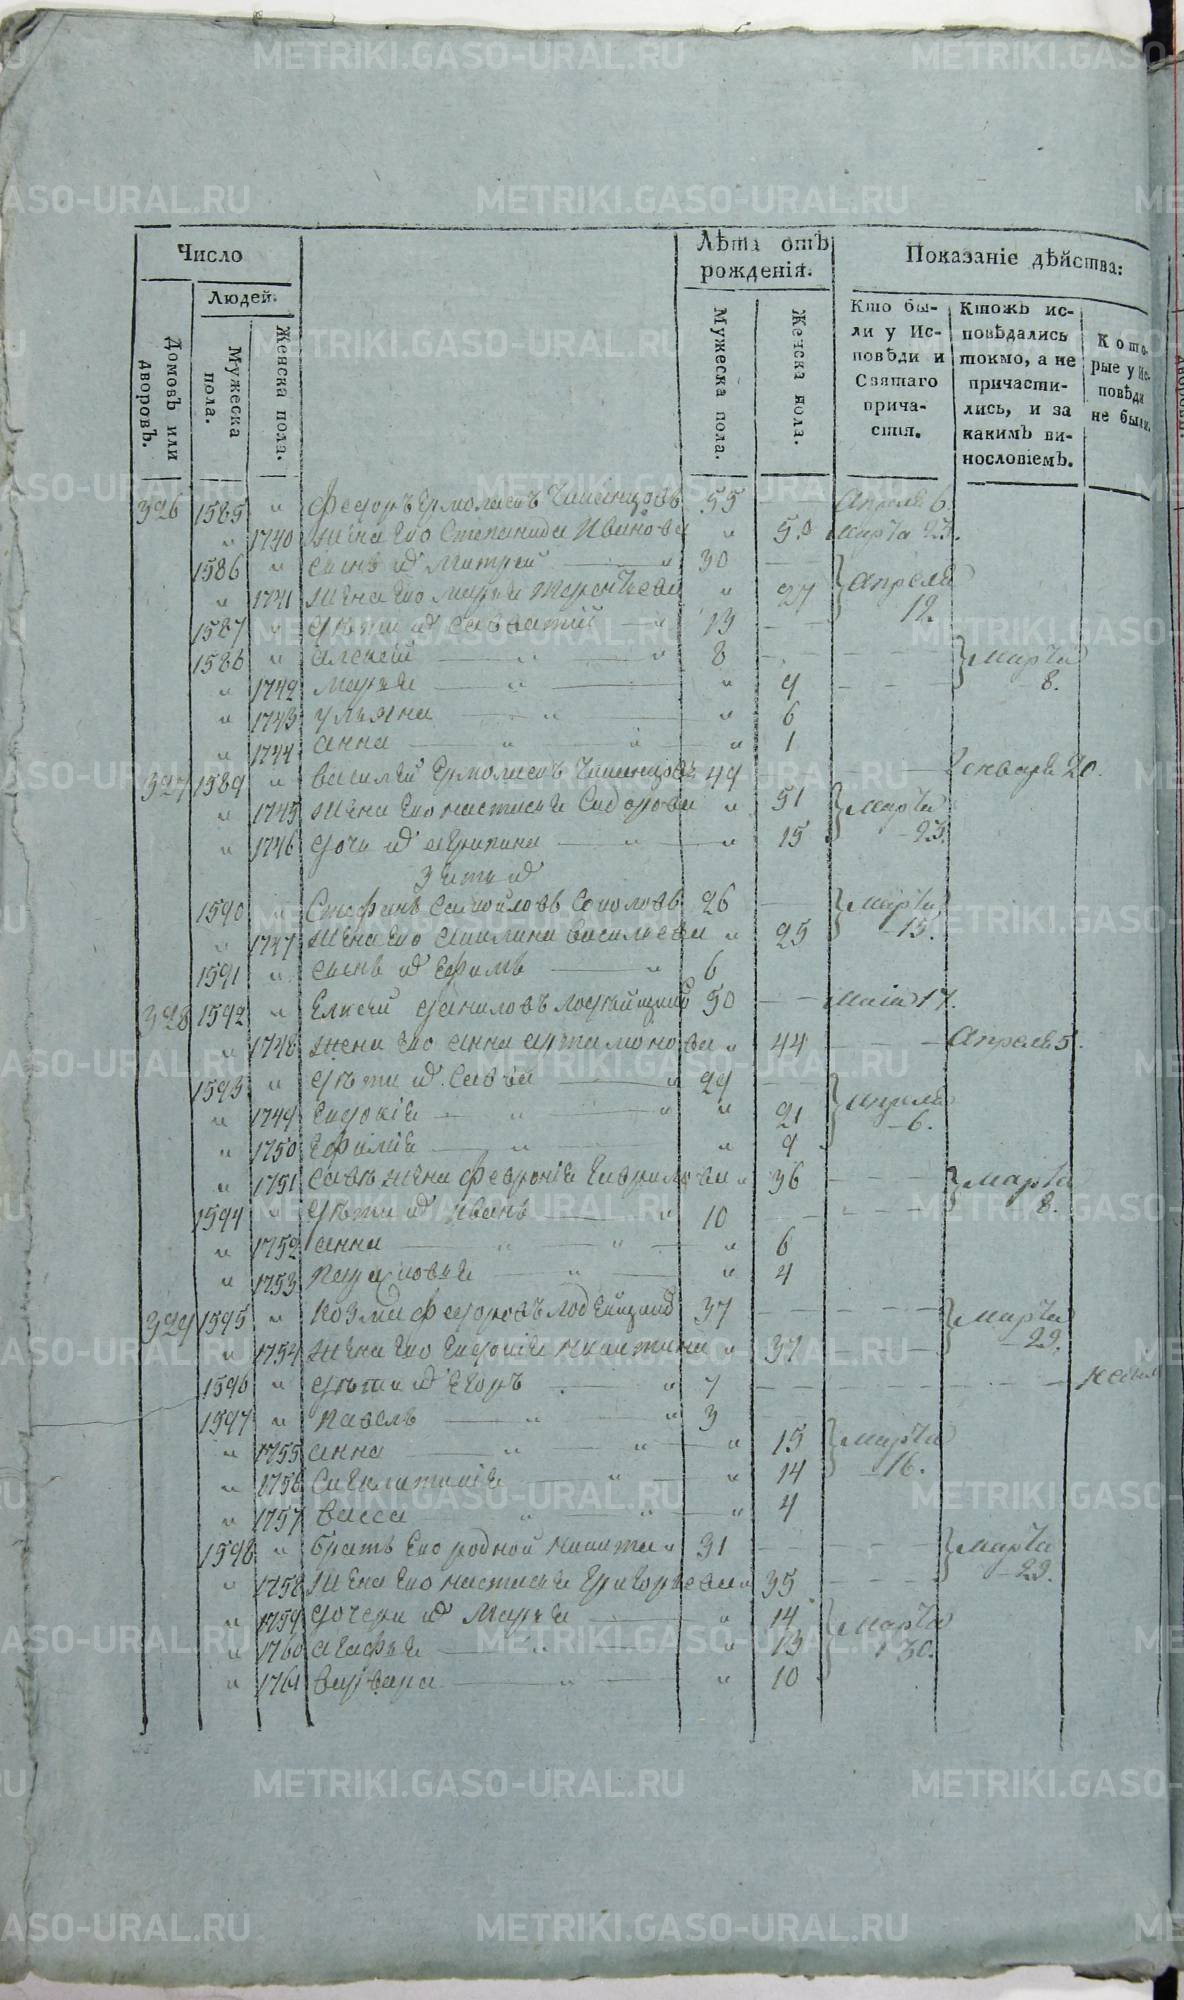 METRIKI.GASO-URAL.RU
Число
Лѣта отъ рожденія.
Показаніе дѣйства:
Людей.
Домовъ или дворовъ.
Мужеска пола.
Женска пола.
Мужеска пола.
Женска пола.
Кто были у Исповѣди и Святаго причастія.
Ктожъ исповѣдались токмо, а не причастились, и за какимъ винословіемъ.
Которые у Исповѣди не были.
326 1585 " Федоръ Ермолаевъ 55 — Апреля 6.
" 1740 жена его Степанида Иванова " 50 Марта 23.
1586 " сынъ их Митрей — " 30 —
" 1741 жена его Марья Терентьева " 27 Апреля
1587 " дѣти их Савватий — " 13 — 12.
1588 " Алексей — " — " 8 — Марта
" 1742 Марья — " — " 9 — 8.
" 1743 Ульяна — " — " 6
" 1744 Анна — " — " — " 1
327 1589 " Василей Ермолаевъ 49 — Генваря 20.
" 1745 жена его Настасья Сидорова " 51 Марта
" 1746 дочь их Агрипина — " — " 15 — 23.
Зять их
1590 " Стефанъ Самойловъ Соколовъ 26 — Марта
" 1747 жена его Васильева " 25 — 15.
1591 " сынъ их Ефимъ — " 6
328 1592 " Елисей Даниловъ 50 — Маія 17.
" 1748 жена его Анна Артамонова " 44 — Апреля 5.
1593 " дѣти их Савва — " 29 —
" 1749 Евдокія — " — " " 21 Апреля
" 1750 Ефимія — " — " 9 — 6.
" 1751 Саввы жена Феврония Гаврилова " 36 — Марта
1594 " дѣти их Иванъ — " 10 — 8.
" 1752 Анна — " — " — " 6
" 1753 Парасковья — " — " 4
329 1595 " Козма Федоровъ 37 — Марта
" 1754 жена его Евдокия Никитина " 37 — 22.
1596 " дѣти их Егоръ — " 7 —
1597 " Павелъ — " — " 3
" 1755 Анна — " — " — " 15 Марта
" 1756 Синклитикія — " — " 14 — 16.
" 1757 Васса — " — " — " 4
1598 " братъ его родной Никита " 31 — Марта
" 1758 жена его Настасья Григорьева " 35 — 22.
" 1759 дочери их Марья — " 14 Марта
" 1760 Агафья — " — " 13 30.
" 1761 Варвара — " — " 10